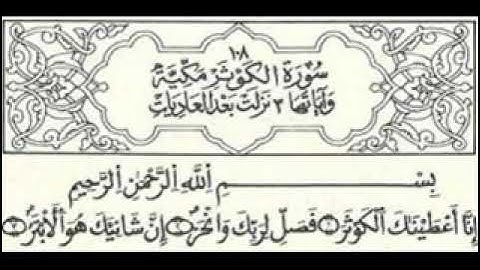 ١٠٨
سُورَةُ الكَوْثَرِ مَكِّيَّة
وَآيَاتُهَا ٣ نَزَلَتْ بَعْدَ العَادِيَاتِ
بِسْمِ ٱللَّهِ ٱلرَّحْمَٰنِ ٱلرَّحِيمِ
إِنَّآ أَعْطَيْنَٰكَ ٱلْكَوْثَرَ ۝١ فَصَلِّ لِرَبِّكَ وَٱنْحَرْ ۝٢ إِنَّ شَانِئَكَ هُوَ ٱلْأَبْتَرُ ۝٣